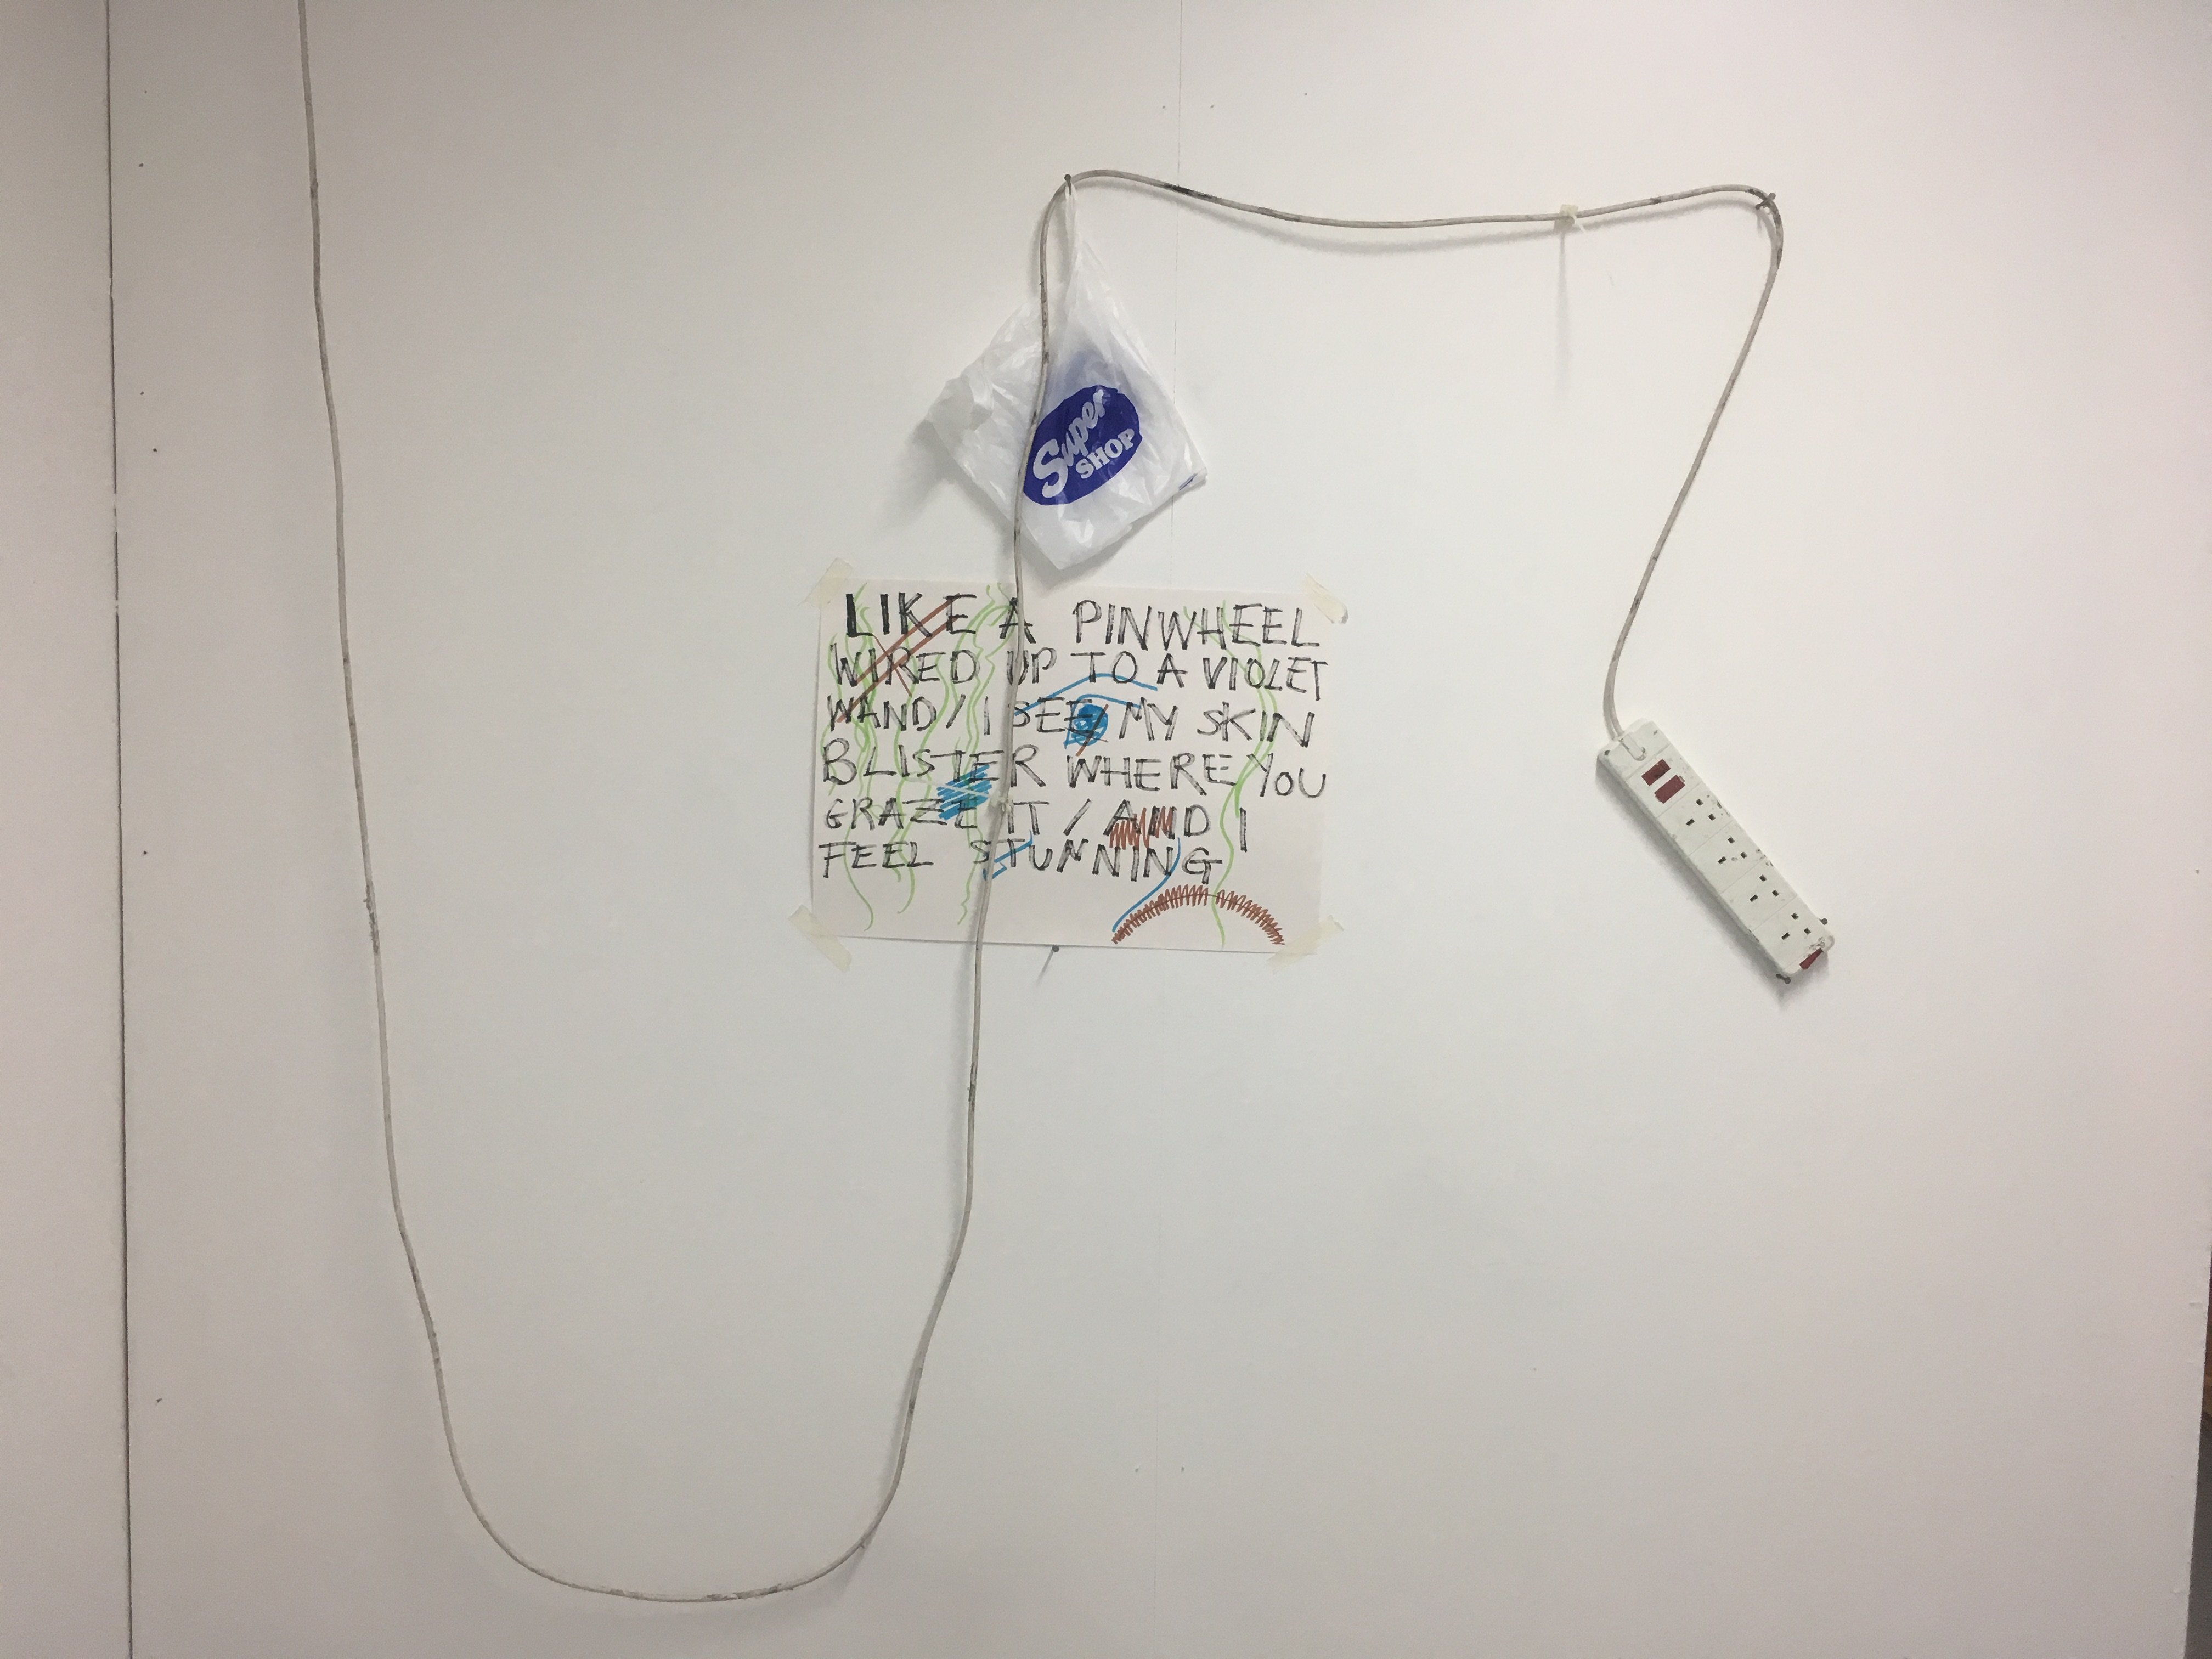 Super
SHOP
LIKE A PINWHEEL
WIRED UP TO A VIOLET
WAND/I SEE/MY SKIN
BLISTER WHERE YOU
GRAZE IT / AND I
FEEL STUNNING